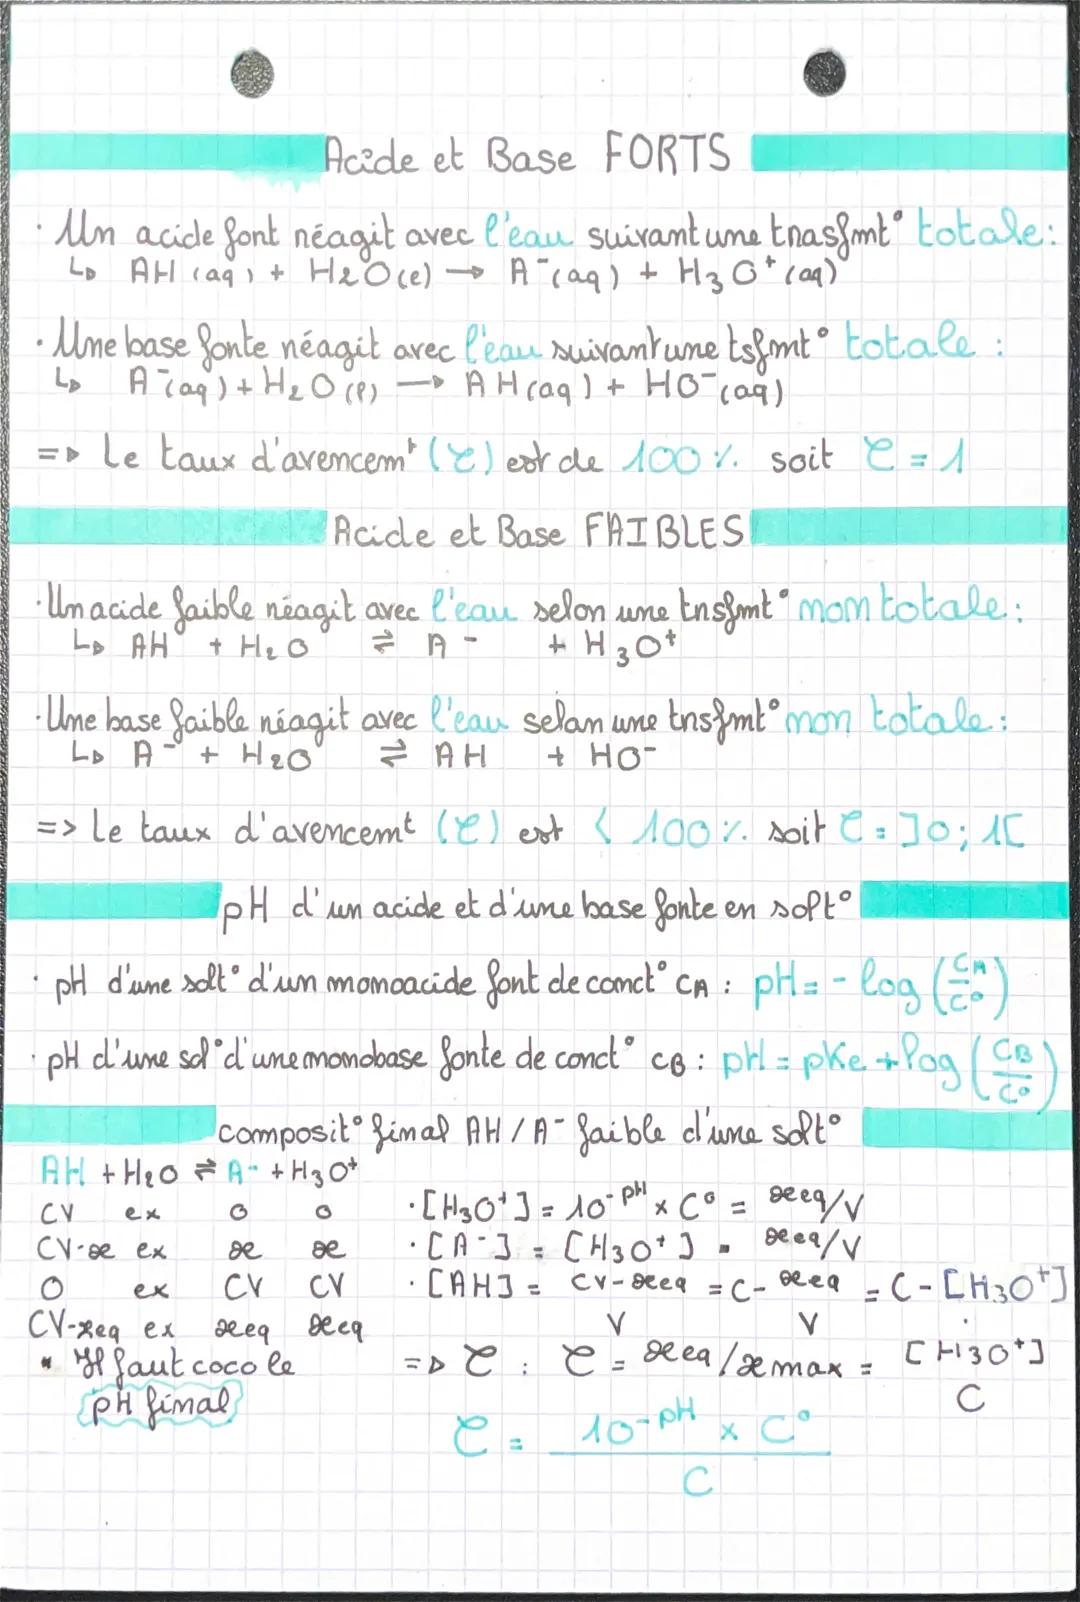 Acide et Base FORTS
· Un acide fort réagit avec l'eau suivant une trasfmt° totale :
↳ AH (aq) + H₂O (l) → A⁻ (aq) + H₃O⁺ (aq)
· Une base forte réagit avec l'eau suivant une tsfmt° totale :
↳ A⁻ (aq) + H₂O (l) → AH (aq) + HO⁻ (aq)
=> Le taux d'avencemt (τ) est de 100 % soit τ = 1
Acide et Base FAIBLES
· Un acide faible réagit avec l'eau selon une trsfmt° non totale :
↳ AH + H₂O ⇌ A⁻ + H₃O⁺
· Une base faible réagit avec l'eau selon une trsfmt° non totale :
↳ A⁻ + H₂O ⇌ AH + HO⁻
=> Le taux d'avencemt (τ) est < 100 % soit τ = ]0 ; 1[
pH d'un acide et d'une base forte en solt°
· pH d'une solt° d'un monoacide fort de conct° CA : pH = - log (CA/C°)
· pH d'une sol° d'une monobase forte de conct° CB : pH = pKe + log (CB/C°)
composit° final AH / A⁻ faible d'une solt°
AH + H₂O ⇌ A⁻ + H₃O⁺
CV ex 0 0 · [H₃O⁺] = 10⁻ᵖᴴ × C° = xeq/V
CV-x ex x x · [A⁻] = [H₃O⁺] = xeq/V
0 ex CV CV · [AH] = CV-xeq/V = C - xeq/V = C - [H₃O⁺]
CV-xeq ex xeq xeq
* Il faut coco le => τ : τ = xeq/xmax = [H₃O⁺]/C
pH final
τ = 10⁻ᵖᴴ × C°/C